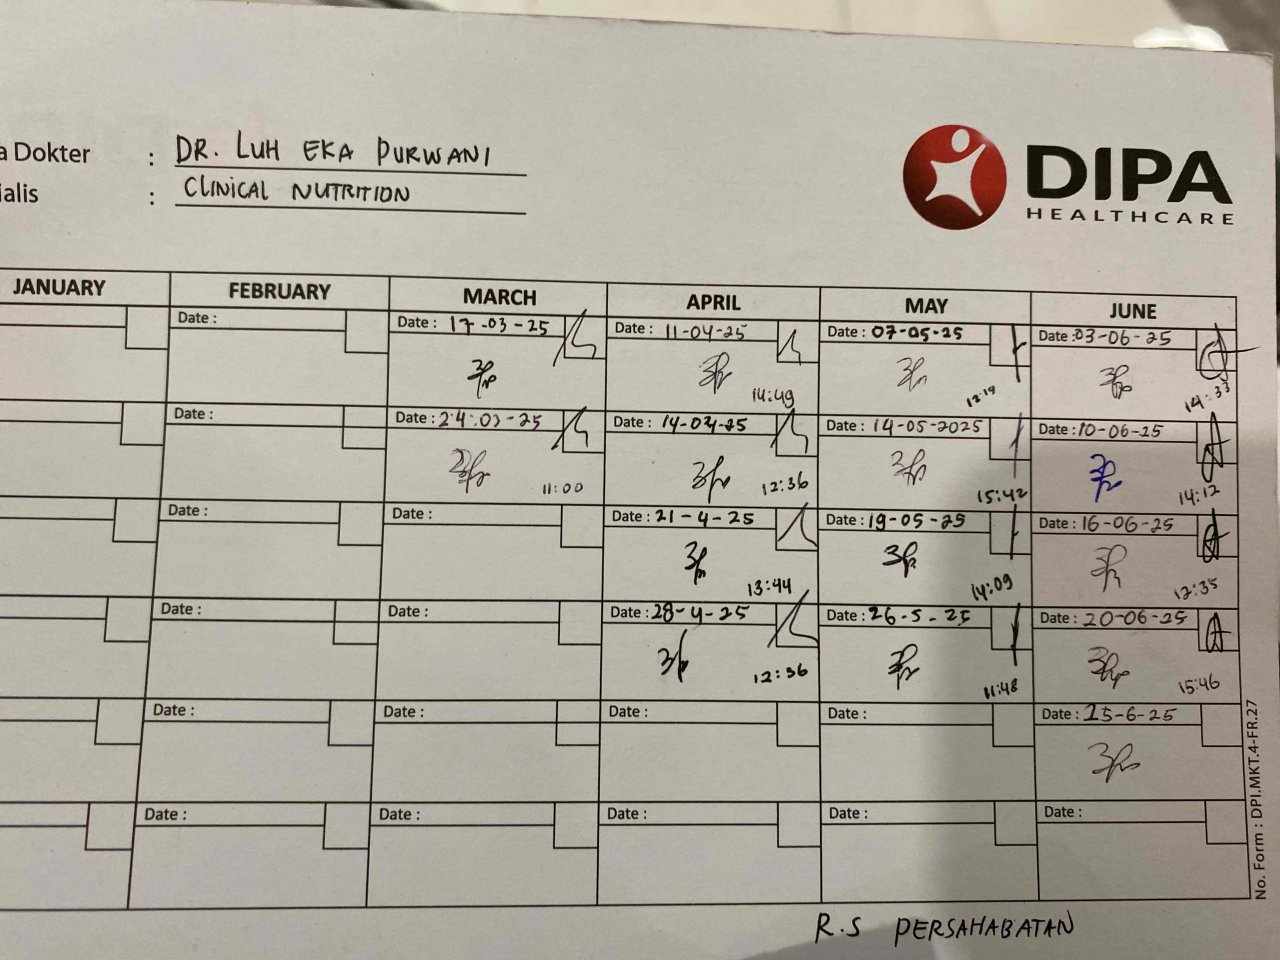 a Dokter : DR. LUH EKA PURWANI
ialis : CLINICAL NUTRITION
DIPA
HEALTHCARE
JANUARY FEBRUARY MARCH APRIL MAY JUNE
Date : Date : 17-03-25 Date : 11-04-25 Date : 07-05-25 Date : 03-06-25
14:49 12:19 14:33
Date : Date : 24-03-25 Date : 14-04-25 Date : 14-05-2025 Date : 10-06-25
11:00 12:36 15:42 14:12
Date : Date : Date : 21-4-25 Date : 19-05-25 Date : 16-06-25
13:44 14:09 12:35
Date : Date : Date : 28-4-25 Date : 26-5-25 Date : 20-06-25
12:36 11:48 15:46
Date : Date : Date : Date : Date : 25-6-25
Date : Date : Date : Date : Date :
No. Form : DPI.MKT.4-FR.27
R.S PERSAHABATAN